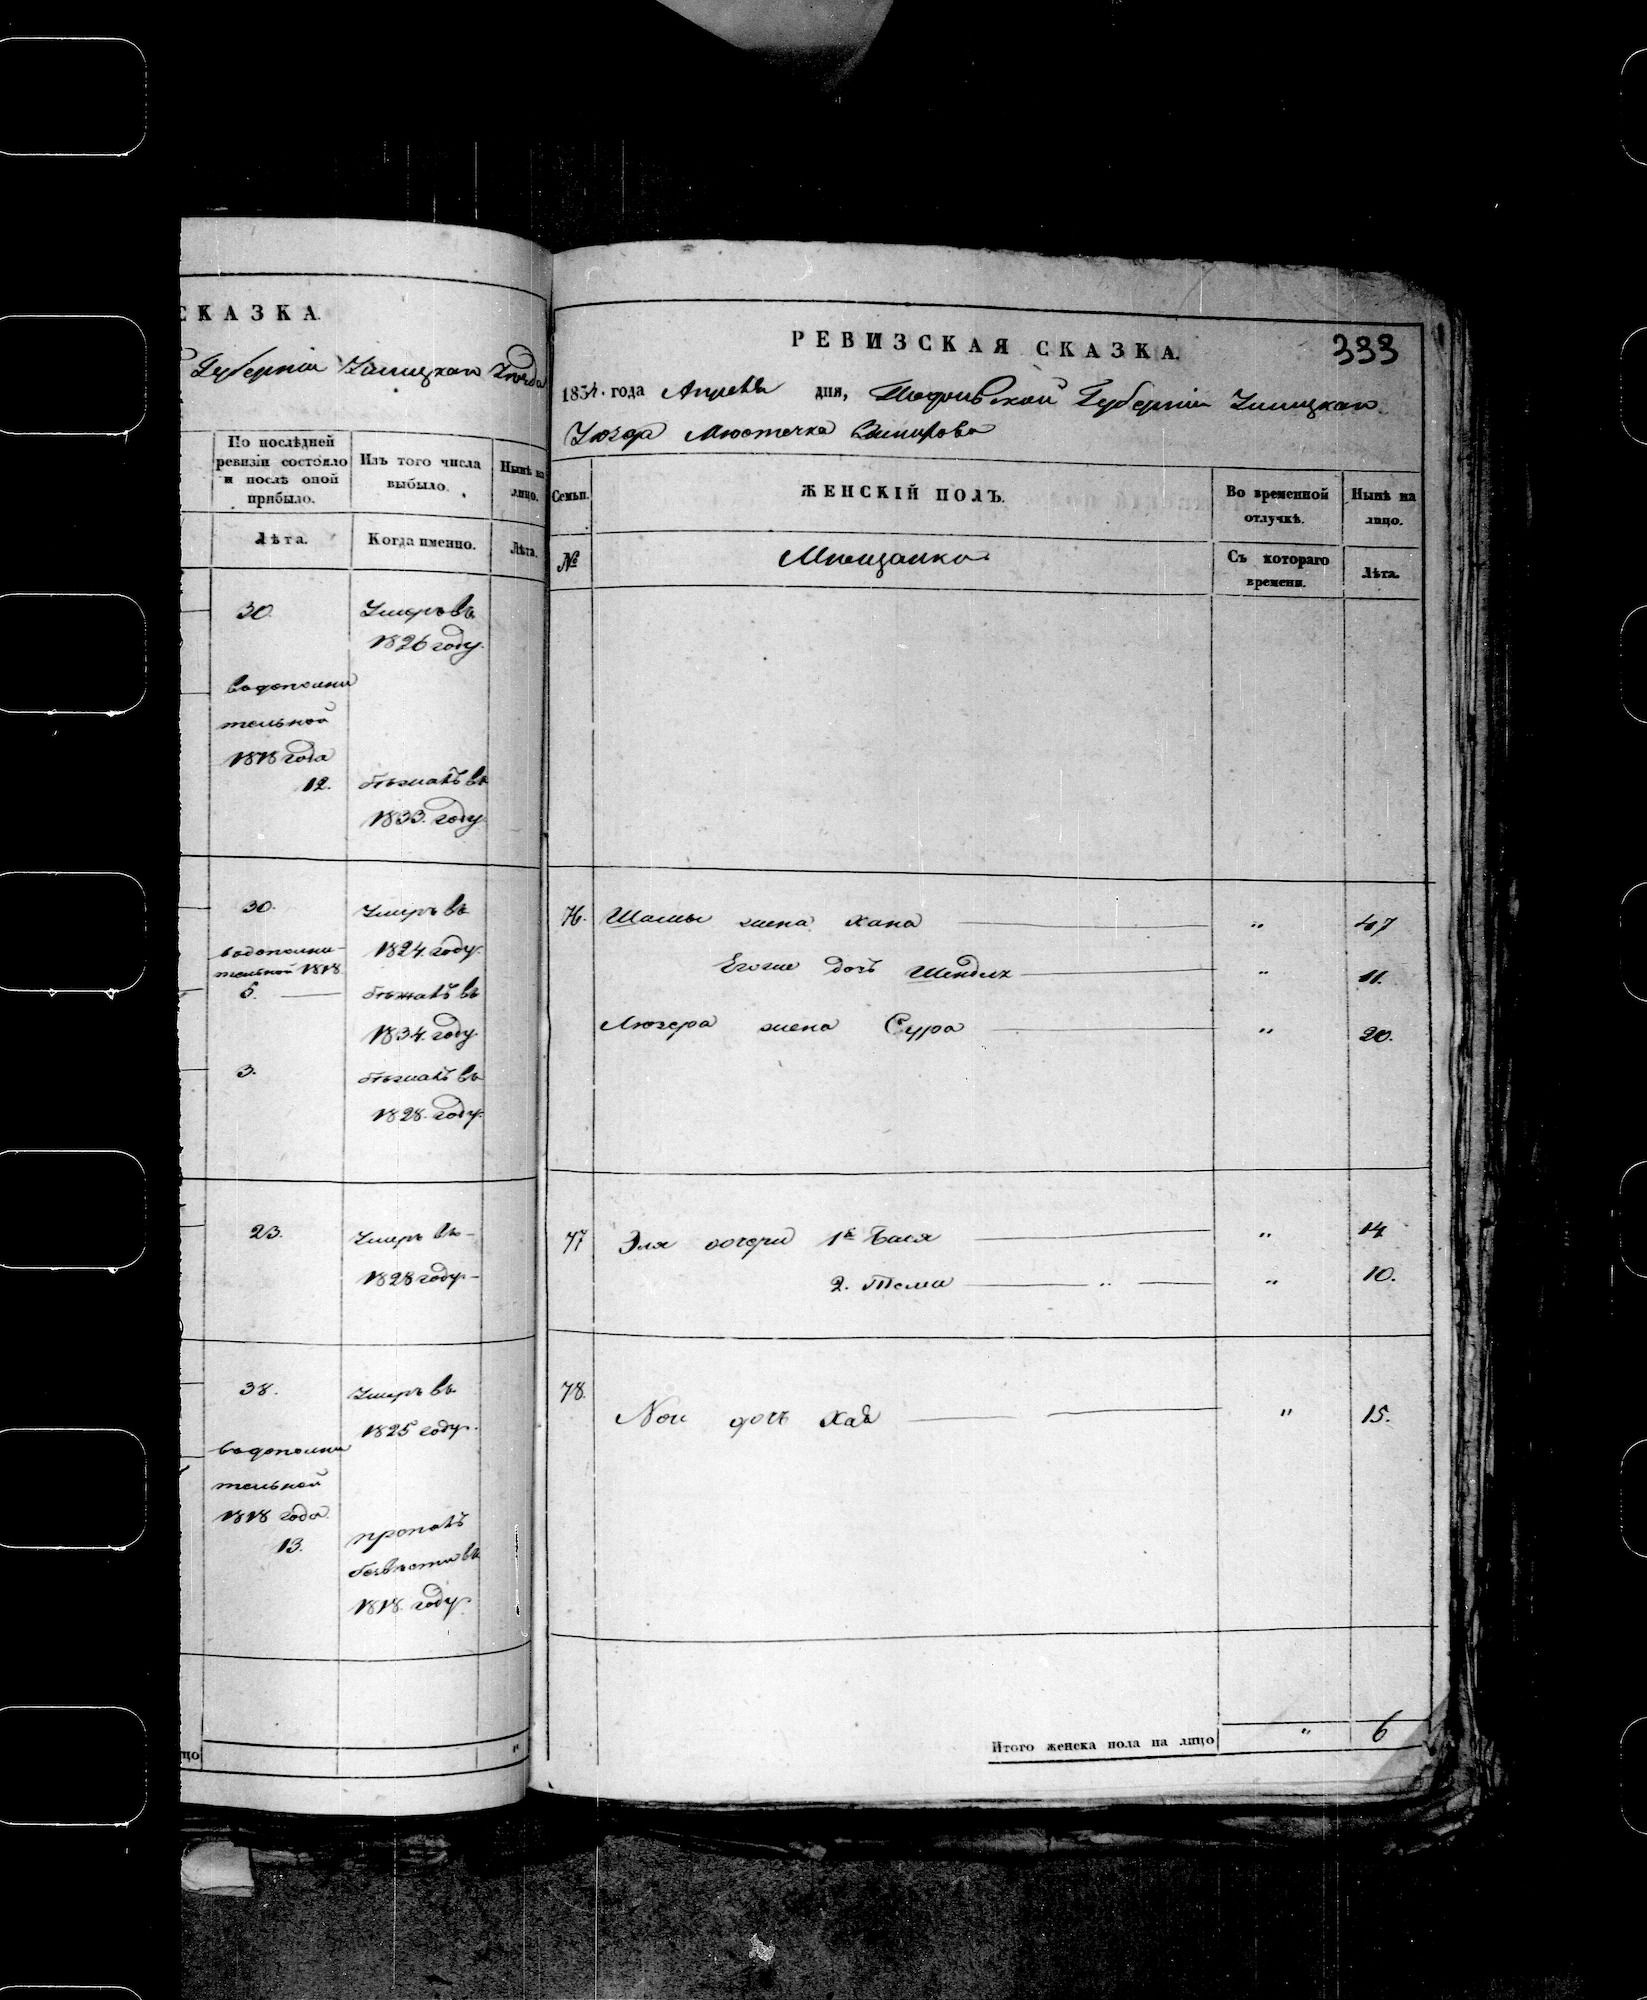 СКАЗКА.
Губерніи Уманскаго Уѣзда
По послѣдней ревизіи состояло и послѣ оной прибыло.
Изъ того числа выбыло.
Нынѣ на лицо.
Лѣта.
Когда именно.
Лѣта.
30.
Умеръ въ
1826 году.
в дополни
тельной
1818 года
12.
бѣжалъ въ
1833. году
30.
Умеръ въ
1824. году.
в дополни-
тельной 1818
5.
бѣжалъ въ
1834. году
3.
бѣжалъ въ
1828. году.
23.
Умеръ въ
1828 году
38.
Умеръ въ
1825 году.
в дополни
тельной
1818 года
13.
пропалъ
безвѣсти въ
1818. году.
цо
РЕВИЗСКАЯ СКАЗКА.
333
1834. года Апрѣля дня, Губерніи
Уѣзда Мѣстечка
Семьи.
ЖЕНСКІЙ ПОЛЪ.
Во временной отлучкѣ.
Нынѣ на лицо.
№
Мѣщанко
Съ котораго времени.
Лѣта.
76. жена Хана " 47
его дочь " 11.
Лейзера жена Сура " 20.
77 Эля дочери 1я Бася " 14
2. Тема " " 10.
78.
дочь Хая " 15.
Итого женска пола на лицо " 6